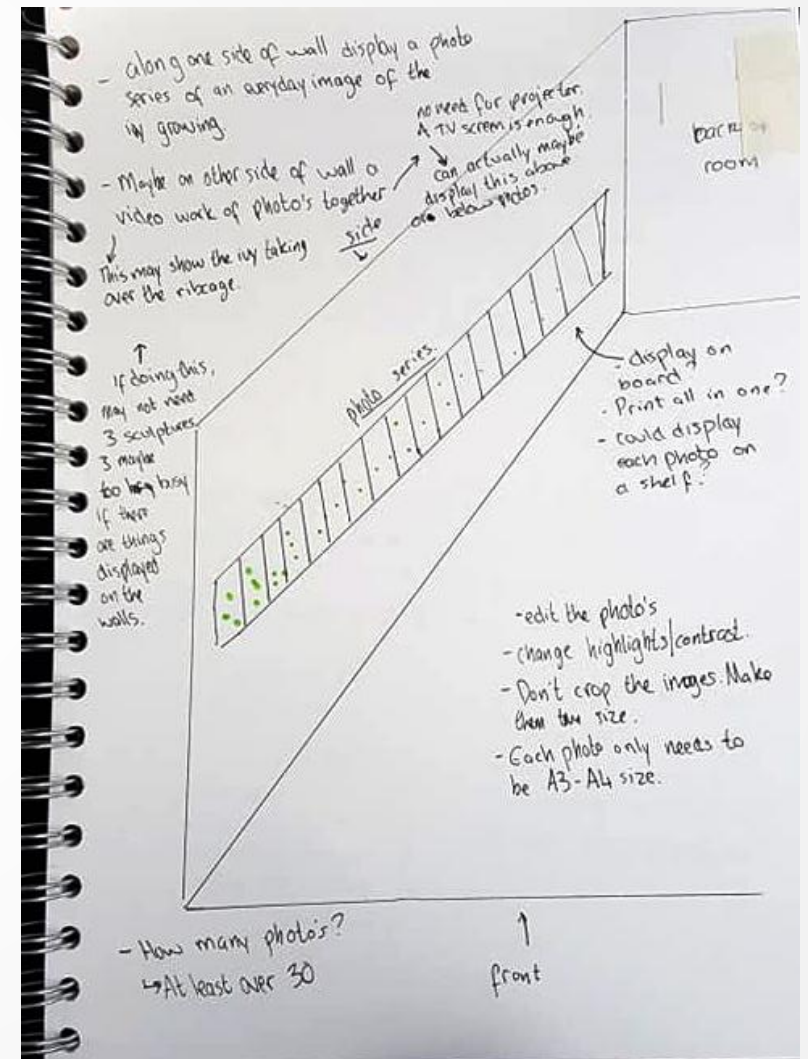 - along one side of wall display a photo
series of an everyday image of the
ivy growing.
- Maybe on other side of wall a
video work of photo's together
no need for projector.
A TV screen is enough.
can actually maybe
display this above
or below photos.
This may show the ivy taking
over the ribcage.
side
back of
room
If doing this,
may not need
3 sculptures.
3 maybe
too busy
if there
are things
displayed
on the
walls.
photo series.
- display on
board?
- Print all in one?
- could display
each photo on
a shelf?
- edit the photo's
- change highlights/contrast.
- Don't crop the images. Make
them size.
- Each photo only needs to
be A3-A4 size.
- How many photo's?
↳ At least over 30
front